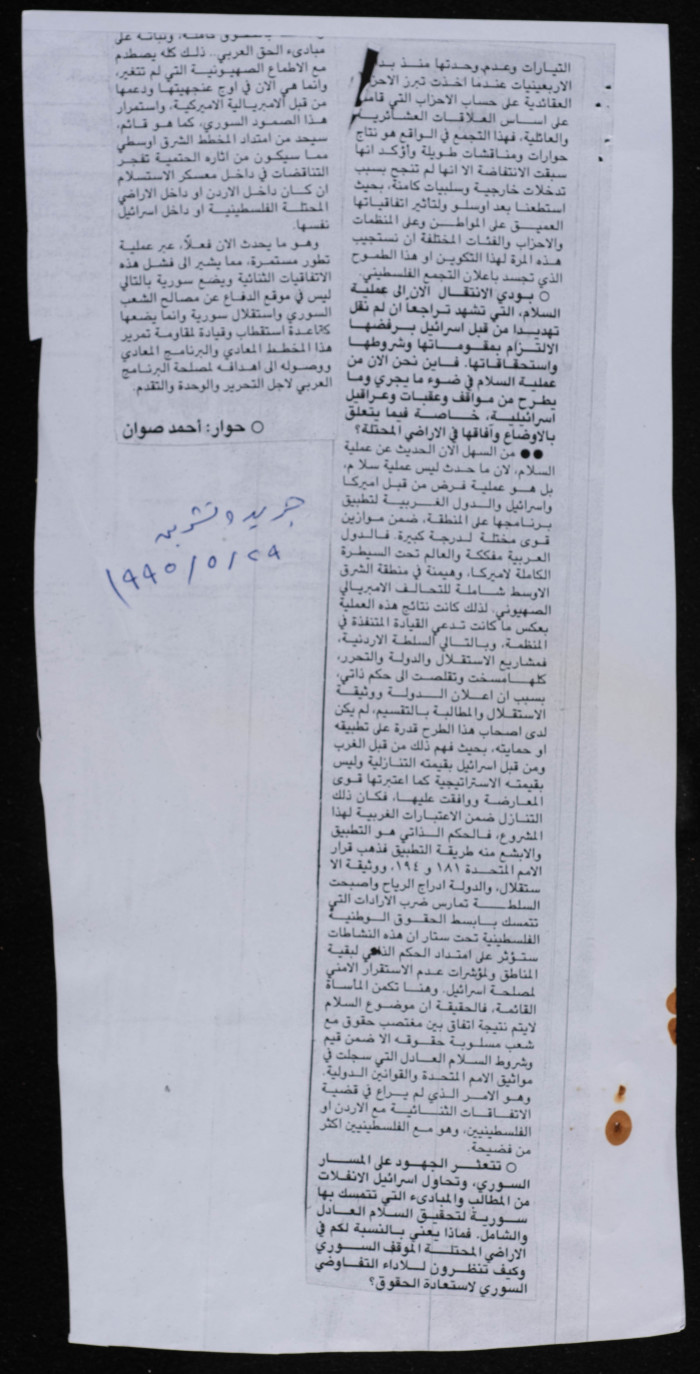 التيارات وعدم وحدتها منذ بد
الاربعينيات عندما اخذت تبرز الاحز
العقائدية على حساب الاحزاب التي قامت
على اساس العلاقات العشائرية
والعائلية، فهذا التجمع في الواقع هو نتاج
حوارات ومناقشات طويلة وأؤكد انها
سبقت الانتفاضة الا انها لم تنجح بسبب
تدخلات خارجية وسلبيات كامنة، بحيث
استطعنا بعد اوسلو ولتأثير اتفاقياتها
العميق على المواطن وعلى المنظمات
والاحزاب والفئات المختلفة ان نستجيب
هذه المرة لهذا التكوين او هذا الطموح
الذي تجسد باعلان التجمع الفلسطيني.
○ بودي الانتقال الآن إلى عملية
السلام، التي تشهد تراجعاً ان لم نقل
تهديدا من قبل اسرائيل برفضها
الالتزام بمقوماتها وشروطها
واستحقاقاتها. فاين نحن الان من
عملية السلام في ضوء ما يجري وما
يطرح من مواقف وعقبات وعراقيل
اسرائيلية، خاصة فيما يتعلق
بالاوضاع وآفاقها في الاراضي المحتلة؟
●● من السهل الآن الحديث عن عملية
السلام، لان ما حدث ليس عملية سلا م،
بل هو عملية فرض من قبل اميركا
واسرائيل والدول الغربية لتطبيق
برنامجها على المنطقة، ضمن موازين
قوى مختلة لدرجة كبيرة. فالدول
العربية مفككة والعالم تحت السيطرة
الكاملة لاميركا، وهيمنة في منطقة الشرق
الاوسط شاملة للتحالف الامبريالي
الصهيوني. لذلك كانت نتائج هذه العملية
بعكس ما كانت تدعي القيادة المتنفذة في
المنظمة، وبالتالي السلطة الاردنية،
فمشاريع الاستقلال والدولة والتحرر،
كلها مسخت وتقلصت الى حكم ذاتي،
بسبب ان اعلان الدولة ووثيقة
الاستقلال والمطالبة بالتقسيم، لم يكن
لدى اصحاب هذا الطرح قدرة على تطبيقه
او حمايته، بحيث فهم ذلك من قبل الغرب
ومن قبل اسرائيل بقيمته التنازلية وليس
بقيمته الاستراتيجية كما اعتبرتها قوى
المعارضة ووافقت عليها، فكان ذلك
التنازل ضمن الاعتبارات الغربية لهذا
المشروع، فالحكم الذاتي هو التطبيق
والابشع منه طريقة التطبيق فذهب قرار
الامم المتحدة ١٨١ و ١٩٤، ووثيقة الا
ستقلال، والدولة ادراج الرياح واصبحت
السلطة تمارس ضرب الارادات التي
تتمسك بابسط الحقوق الوطنية
الفلسطينية تحت ستار ان هذه النشاطات
ستؤثر على امتداد الحكم الذاتي لبقية
المناطق ولمؤشرات عدم الاستقرار الامني
لمصلحة اسرائيل. وهنا تكمن المأساة
القائمة، فالحقيقة ان موضوع السلام
لايتم نتيجة اتفاق بين مغتصب حقوق مع
شعب مسلوبة حقوقه الا ضمن قيم
وشروط السلام العادل التي سجلت في
مواثيق الامم المتحدة والقوانين الدولية.
وهو الامر الذي لم يراع في قضية
الاتفاقات الثنائية مع الاردن او
الفلسطينيين، وهو مع الفلسطينيين اكثر
من فضيحة.
○ تتعثر الجهود على المسار
السوري، وتحاول اسرائيل الانفلات
من المطالب والمبادىء التي تتمسك بها
سورية لتحقيق السلام العادل
والشامل. فماذا يعني بالنسبة لكم في
الاراضي المحتلة الموقف السوري
وكيف تنظرون للاداء التفاوضي
السوري لاستعادة الحقوق؟
كاملة، وثباته على
مبادىء الحق العربي.. ذلك كله يصطدم
مع الاطماع الصهيونية التي لم تتغير،
وانما هي الآن في اوج عنجهيتها ودعمها
من قبل الامبريالية الاميركية، واستمرار
هذا الصمود السوري، كما هو قائم،
سيحد من امتداد المخطط الشرق اوسطي
مما سيكون من آثاره الحتمية تفجر
التناقضات في داخل معسكر الاستسلام
ان كان داخل الاردن او داخل الاراضي
المحتلة الفلسطينية او داخل اسرائيل
نفسها.
وهو ما يحدث الان فعلاً، عبر عملية
تطور مستمرة، مما يشير الى فشل هذه
الاتفاقيات الثنائية ويضع سورية بالتالي
ليس في موقع الدفاع عن مصالح الشعب
السوري واستقلال سورية وانما يضعها
كقاعدة استقطاب وقيادة لمقاومة تمرير
هذا المخطط المعادي والبرنامج المعادي
ووصوله الى اهدافه لمصلحة البرنامج
العربي لاجل التحرير والوحدة والتقدم.
○ حوار: أحمد صوان
جريدة تشرين
١٩٩٥/٥/٢٩